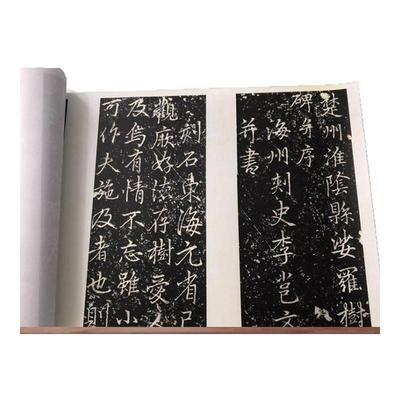 楚州淮陰縣娑羅樹
碑并序
海州刺史李邕文
并書
刻石東海元省己
觀厥好法存樹愛
及烏有情不忘雖小
可作夫施及者也則